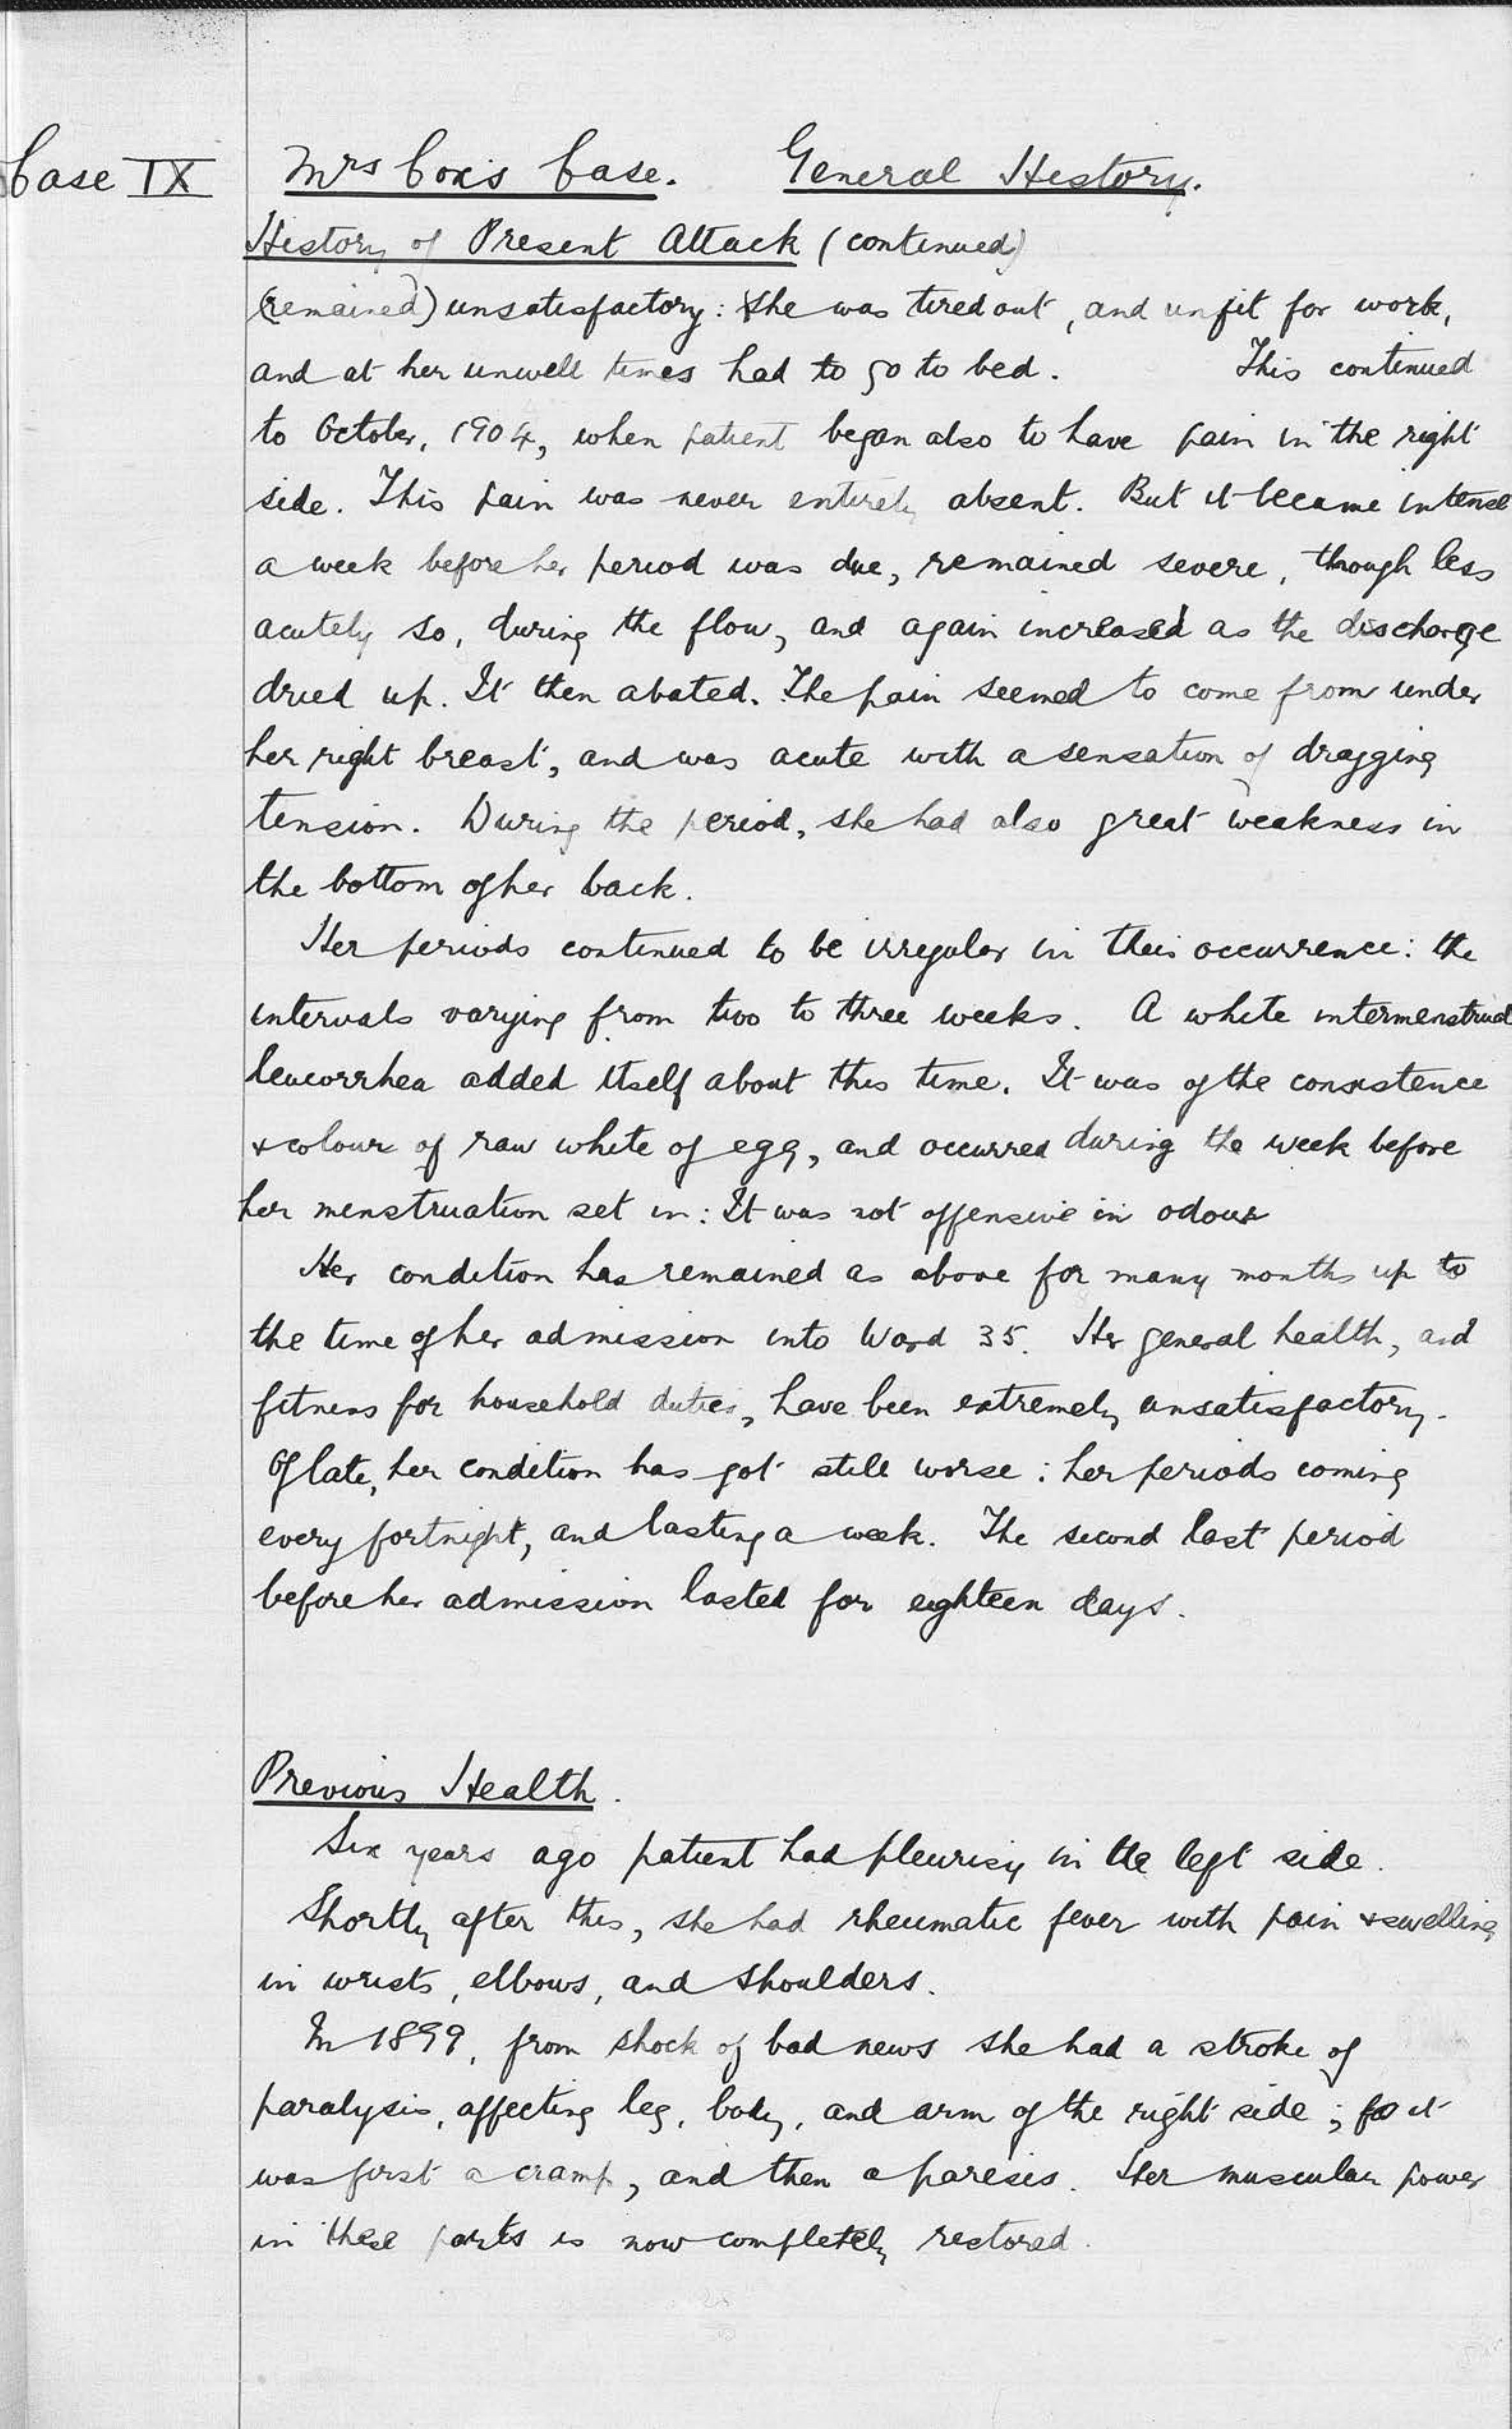 Case IX
Mrs Cox's Case. General History.
History of Present Attack (continued)
(remained) unsatisfactory: she was tired out, and unfit for work,
and at her unwell times had to go to bed. This continued
to October, 1904, when patient began also to have pain in the right
side. This pain was never entirely absent. But it became intense
a week before her period was due, remained severe, though less
acutely so, during the flow, and again increased as the discharge
dried up. It then abated. The pain seemed to come from under
her right breast, and was acute with a sensation of dragging
tension. During the period, she had also great weakness in
the bottom of her back.
Her periods continued to be irregular in their occurrence: the
intervals varying from two to three weeks. A white intermenstrual
leucorrhea added itself about this time. It was of the consistence
& colour of raw white of egg, and occurred during the week before
her menstruation set in: It was not offensive in odour
Her condition has remained as above for many months up to
the time of her admission into Ward 35. Her general health, and
fitness for household duties, have been extremely unsatisfactory.
Of late, her condition has got still worse: her periods coming
every fortnight, and lasting a week. The second last period
before her admission lasted for eighteen days.
Previous Health.
Six years ago patient had pleurisy in the left side.
Shortly after this, she had rheumatic fever with pain & swelling
in wrists, elbows, and shoulders.
In 1899, from shock of bad news she had a stroke of
paralysis, affecting leg, body, and arm of the right side; it
was first a cramp, and then a paresis. Her muscular power
in these parts is now completely restored.